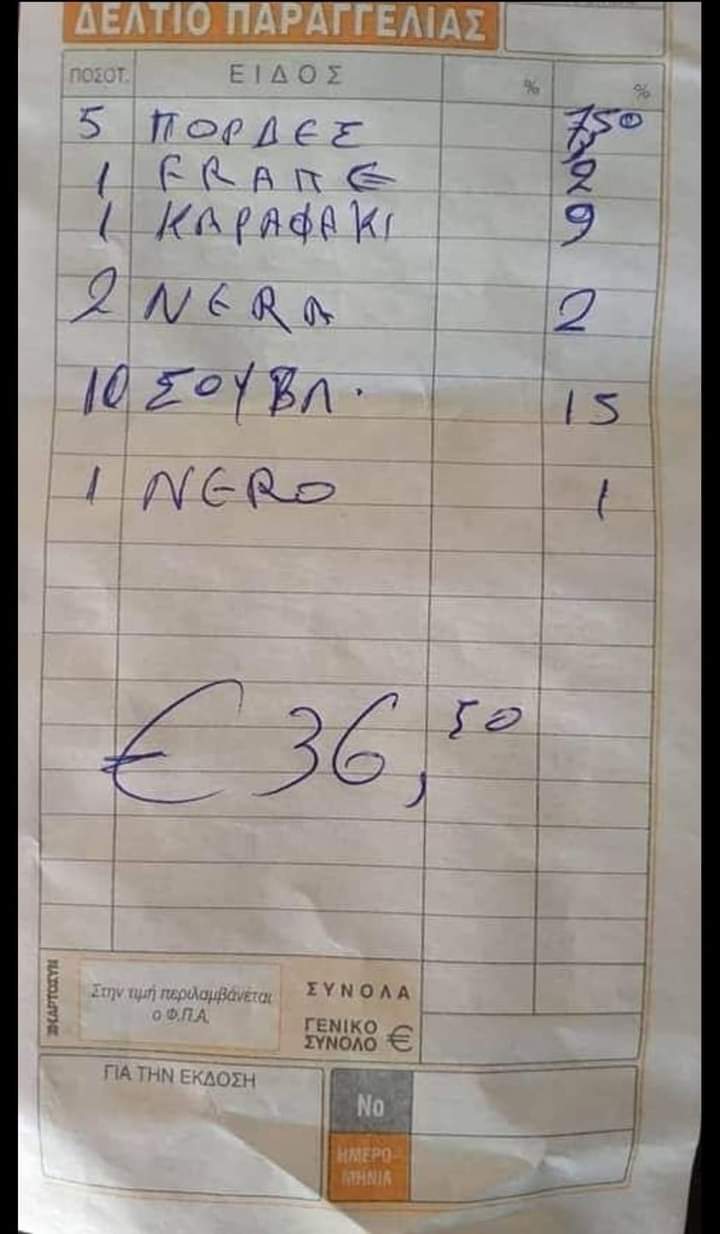 ΔΕΛΤΙΟ ΠΑΡΑΓΓΕΛΙΑΣ
ΠΟΣΟΤ. ΕΙΔΟΣ % %
5 ΠΟΡΔΕΣ 750
1 FRAΠΕ 2
1 ΚΑΡΑΦΑΚΙ 9
2 NERA 2
10 ΣΟΥΒΛ. 15
1 NERO 1
€ 36,50
Στην τιμή περιλαμβάνεται
ο Φ.Π.Α.
ΣΥΝΟΛΑ
ΓΕΝΙΚΟ
ΣΥΝΟΛΟ €
ΓΙΑ ΤΗΝ ΕΚΔΟΣΗ
No
ΗΜΕΡΟ-
ΜΗΝΙΑ